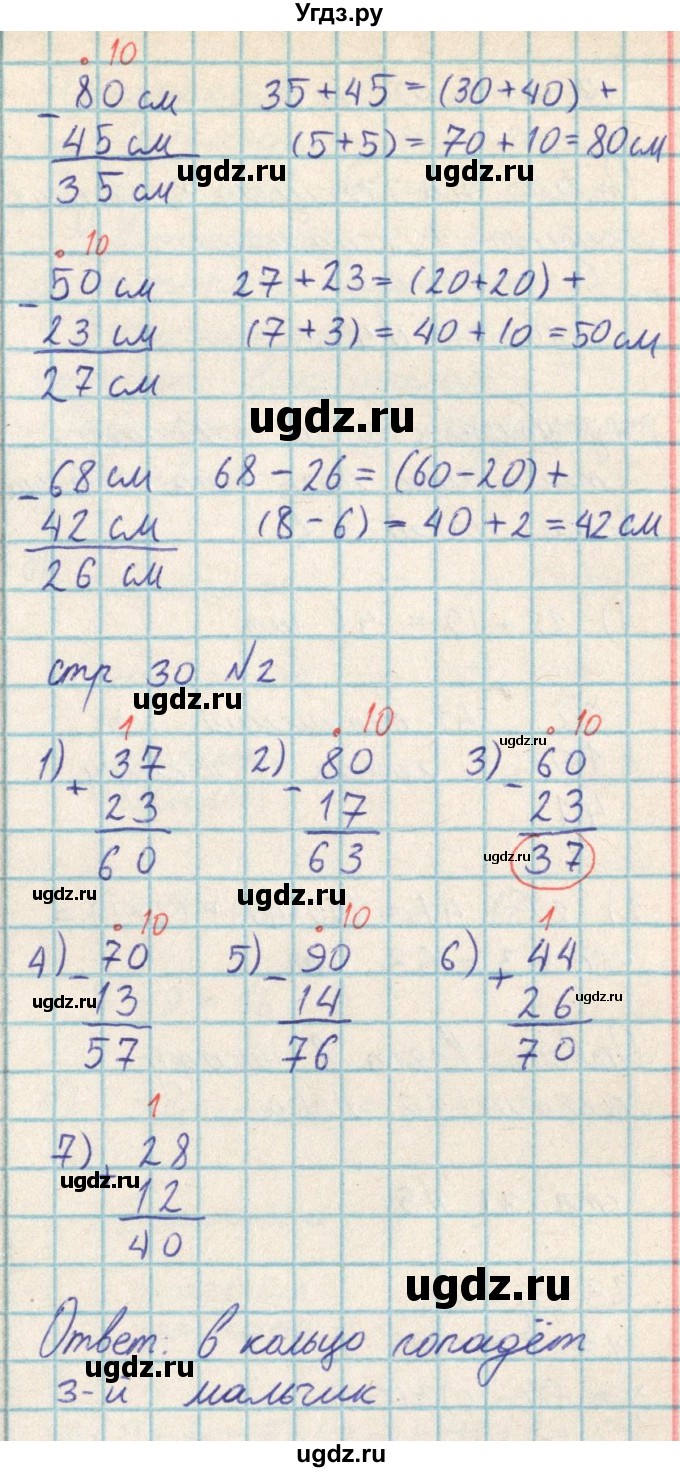 Угдз.ру
• 10
- 80 см    35 + 45 = (30 + 40) +
45 см    (5 + 5) = 70 + 10 = 80 см
ugdz.ru ugdz.ru
35 см
• 10
- 50 см    27 + 23 = (20+20) +
23 см    (7 + 3) = 40 + 10 = 50 см
ugdz.ru
27 см
ugdz.ru
- 68 см    68 - 26 = (60 - 20) +
42 см    (8 - 6) = 40 + 2 = 42 см
26 см
стр 30 №2
ugdz.ru
1 • 10 • 10
ugdz.ru
1) + 37    2) - 80    3) - 60
23    17    23
60    63    37
ugdz.ru
ugdz.ru ugdz.ru
• 10 • 10 1
4) - 70    5) - 90    6) + 44
13    14    26
ugdz.ru ugdz.ru
57    76    70
1
7) + 28
ugdz.ru
12
40
ugdz.ru
Ответ: в кольцо попадёт
ugdz.ru
3-й мальчик
ugdz.ru